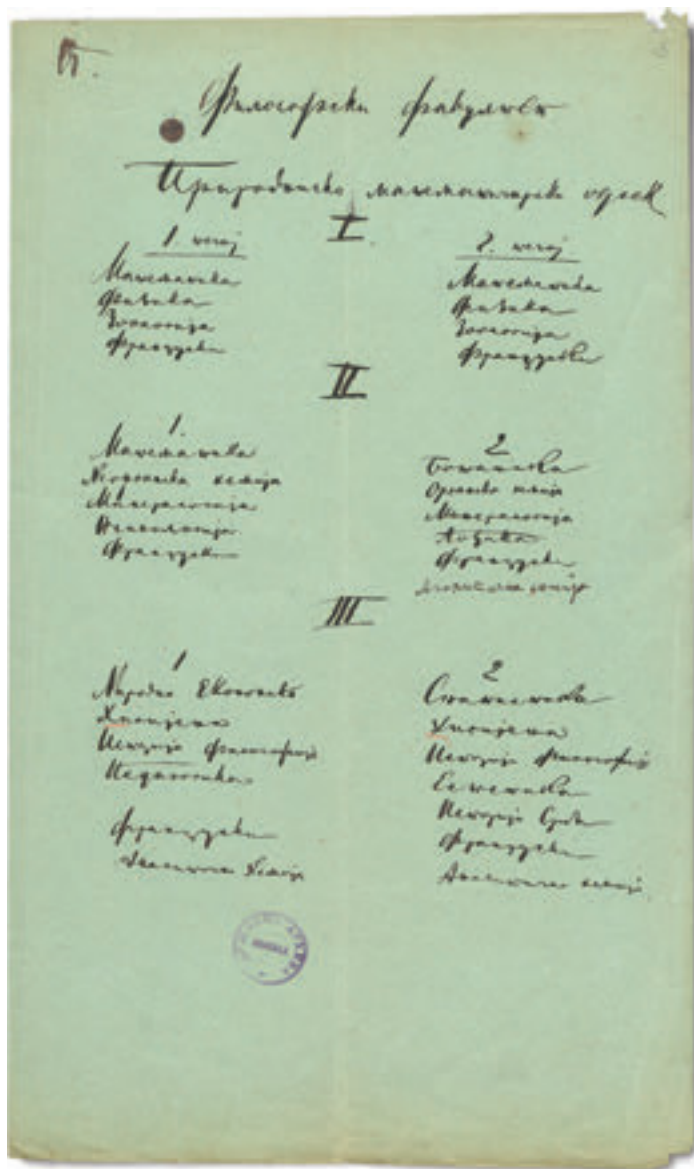 Филозофски факултет
Природњачко математички одсек
I
1. течај
Математика
Физика
Зоологија
Француски
2. течај
Математика
Физика
Зоологија
Француски
II
1.
Математика
Неорганска хемија
Минералогија
Француски
2
Ботаника
Органска хемија
Минералогија
Физика
Француски
III
1
Народна Економија
Хигијена
Историја филозофије
Педагогика
Француски
Аналитична Хемија
2
Статистика
Хигијена
Историја филозофије
Естетика
Историја Срба
Француски
Аналитична хемија